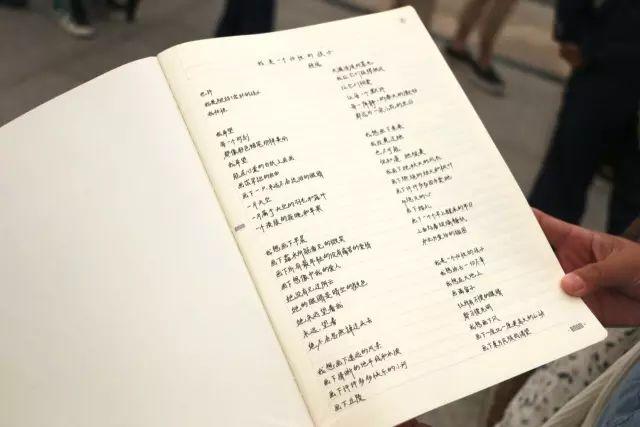 我是一个任性的孩子
顾城
也许
我是被妈妈宠坏的孩子
我任性
我希望
每一个时刻
都像彩色蜡笔那样美丽
我希望
能在心爱的白纸上画画
画出笨拙的自由
画下一只永远不会流泪的眼睛
一片天空
一片属于天空的羽毛和树叶
一个淡绿的夜晚和苹果
我想画下早晨
画下露水所能看见的微笑
画下所有最年轻的没有痛苦的爱情
画下想象中我的爱人
她没有见过阴云
她的眼睛是晴空的颜色
她永远望着我
永远,望着
绝不会忽然掉过头去
我想画下遥远的风景
画下清晰的地平线和水波
画下许许多多快乐的小河
画下丘陵
长满淡淡的茸毛
我让它们挨得很近
让它们相爱
让每一个默许
每一阵静静的春天的激动
都成为一朵小花的生日
我想画下未来
我没见过她
也不可能
但知道她很美
我画下她秋天的风衣
画下那些燃烧的烛火和枫叶
画下许许多多因为爱她
而熄灭的心
画下婚礼
画下一个个早上醒来的节日
上面贴着玻璃糖纸
和北方童话的插图
我是一个任性的孩子
我想涂去一切不幸
我想在大地上
画满窗子
让所有习惯黑暗的眼睛
都习惯光明
我想画下风
画下一架比一架更高大的山岭
画下东方民族的渴望